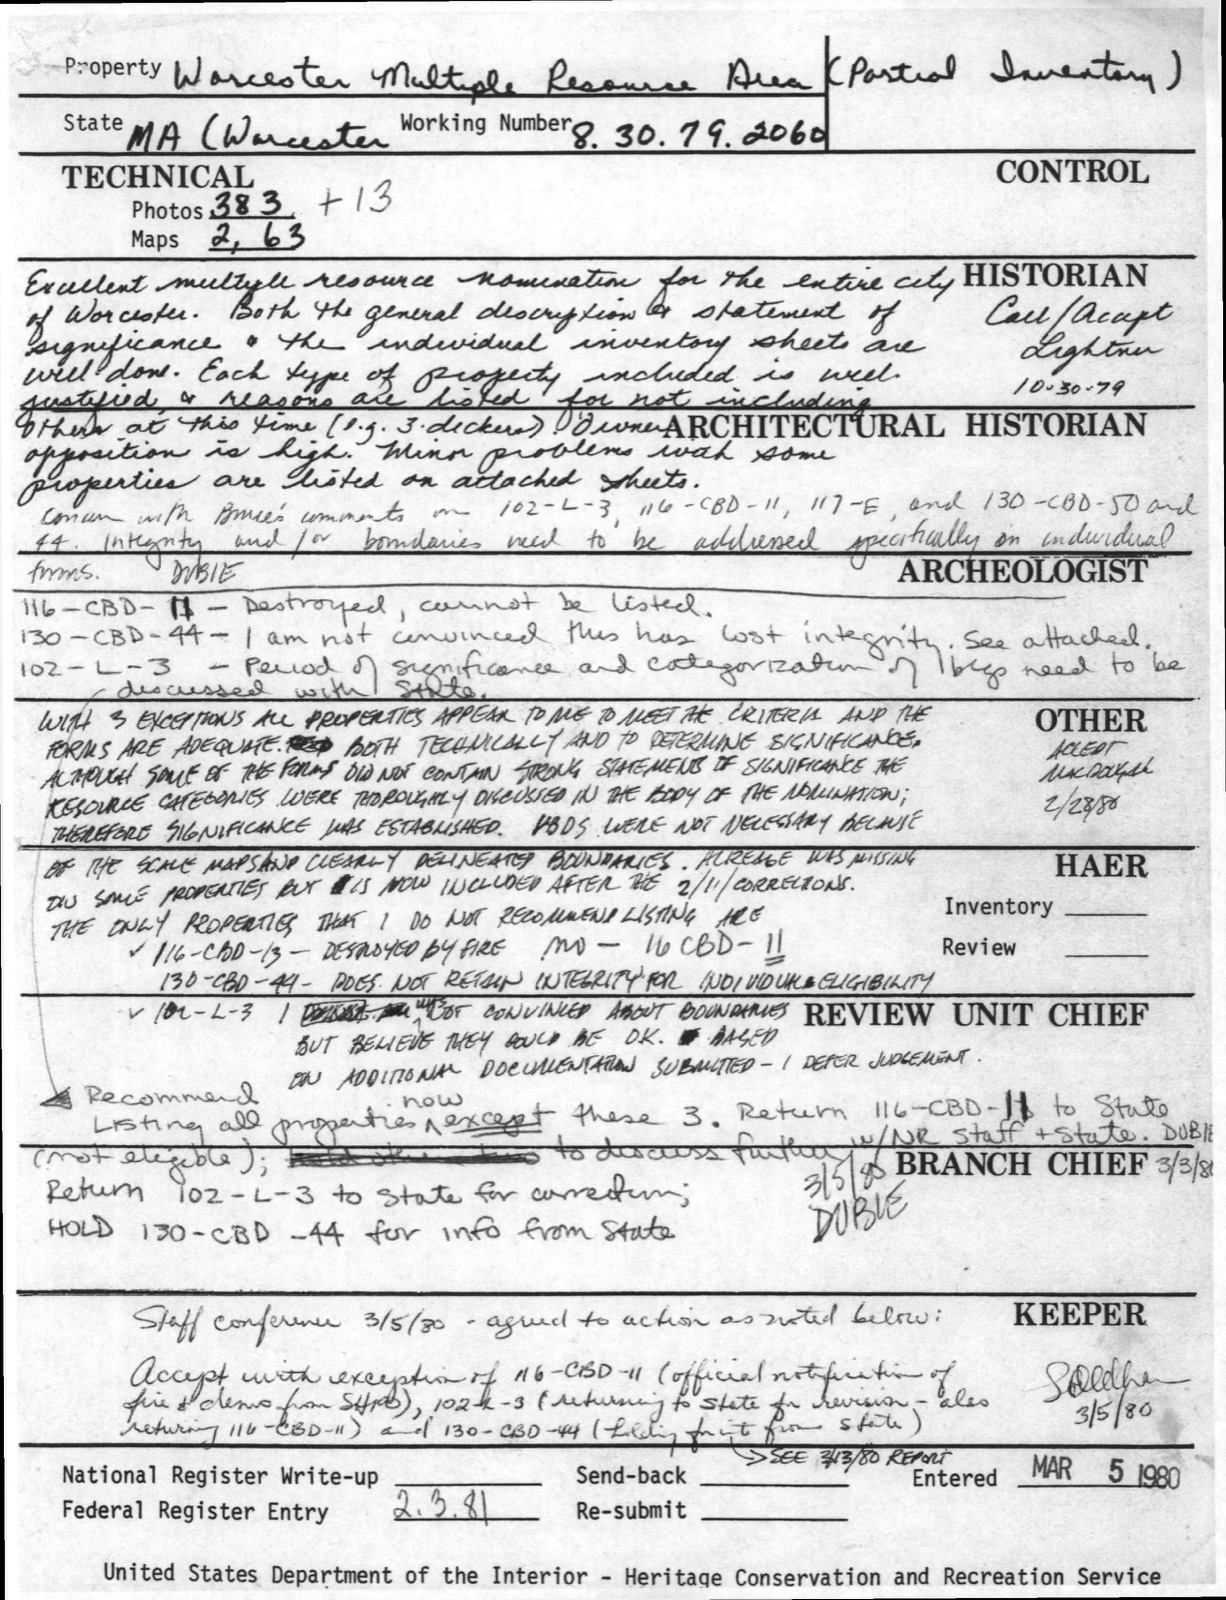 Property Worcester Multiple Resource Area (Partial Inventory)
State MA (Worcester Working Number 8.30.79.2060
TECHNICAL CONTROL
Photos 383 + 13
Maps 2, 63
Excellent multiple resource nomination for the entire city HISTORIAN
of Worcester. Both the general description & statement of Call/Accept
significance & the individual inventory sheets are Lightner
well done. Each type of property included is well 10-30-79
justified, & reasons are listed for not including
others at this time (e.g. 3-deckers). Owner ARCHITECTURAL HISTORIAN
opposition is high. Minor problems with some
properties are listed on attached sheets.
Concur with Bruce's comments on 102-L-3, 116-CBD-11, 117-E, and 130-CBD-50 and
44. Integrity and/or boundaries need to be addressed specifically on individual
forms. DUBIE ARCHEOLOGIST
116-CBD-11 - Destroyed, cannot be listed.
130-CBD-44 - I am not convinced this has lost integrity. See attached.
102-L-3 - Period of significance and categorization of bldgs need to be
discussed with State.
WITH 3 EXCEPTIONS ALL PROPERTIES APPEAR TO ME TO MEET THE CRITERIA AND THE OTHER
FORMS ARE ADEQUATE BOTH TECHNICALLY AND TO DETERMINE SIGNIFICANCE. ACCEPT
ALTHOUGH SOME OF THE FORMS DID NOT CONTAIN STRONG STATEMENTS OF SIGNIFICANCE THE MACDOUGAL
RESOURCE CATEGORIES WERE THOROUGHLY DISCUSSED IN THE BODY OF THE NOMINATION; 2/28/80
THEREFORE SIGNIFICANCE WAS ESTABLISHED. VBDS WERE NOT NECESSARY BECAUSE
OF THE SCALE MAPS AND CLEARLY DELINEATED BOUNDARIES. ACREAGE WAS MISSING HAER
ON SOME PROPERTIES BUT IS NOW INCLUDED AFTER THE 2/11/ CORRECTIONS.
THE ONLY PROPERTIES THAT I DO NOT RECOMMEND LISTING ARE Inventory
✓ 116-CBD-13 - DESTROYED BY FIRE NO - 116 CBD-11 Review
130-CBD-44 - DOES NOT RETAIN INTEGRITY FOR INDIVIDUAL ELIGIBILITY
✓ 102-L-3 I WAS NOT CONVINCED ABOUT BOUNDARIES REVIEW UNIT CHIEF
BUT BELIEVE THEY COULD BE OK. BASED
ON ADDITIONAL DOCUMENTATION SUBMITTED - I DEFER JUDGEMENT.
Recommend
Listing all properties now except these 3. Return 116-CBD-11 to State
(not eligible); to discuss further w/NR Staff + State. DUBIE
BRANCH CHIEF 3/3/80
Return 102-L-3 to State for correction; 3/5/80
HOLD 130-CBD-44 for info from State DUBIE
Staff conference 3/5/80 - agreed to action as noted below: KEEPER
Accept with exception of 116-CBD-11 (official notification of
fire & demo from SHPO), 102-L-3 (returning to State for revision - also 3/5/80
returning 116-CBD-11) and 130-CBD-44 (holding for info from State)
SEE 3/13/80 REPORT
National Register Write-up Send-back Entered MAR 5 1980
Federal Register Entry 2.3.81 Re-submit
United States Department of the Interior - Heritage Conservation and Recreation Service